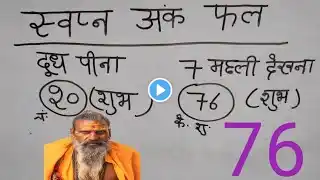 स्वप्न अंक फल
दूध पीना
7 मछली देखना
२० (शुभ)
76 (शुभ)
76